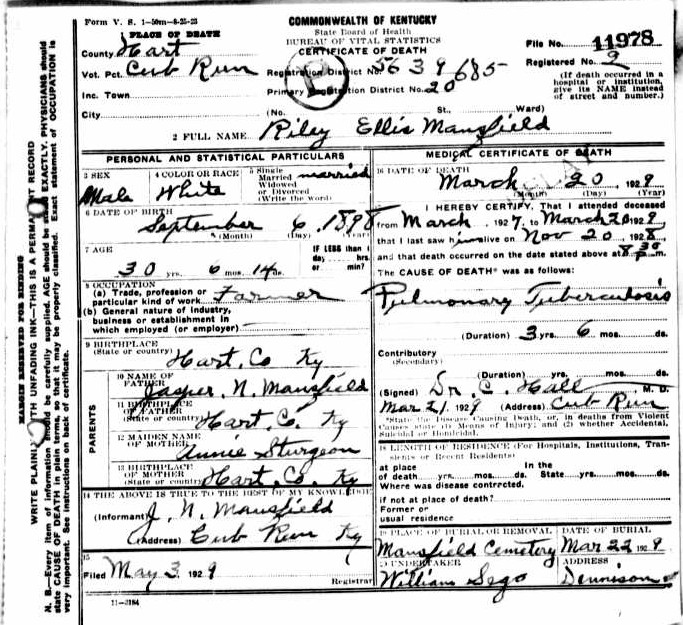 Form V. S. 1-50m-8-25-23
COMMONWEALTH OF KENTUCKY
State Board of Health
BUREAU OF VITAL STATISTICS
CERTIFICATE OF DEATH
File No. 11978
Registered No. 9
(If death occurred in a hospital or institution, give its NAME instead of street and number.)
1 PLACE OF DEATH
County Hart
Vot. Pct. Cub Run
Inc. Town
City
Registration District No. 5639 685
Primary Registration District No. 20
(No. St., Ward)
2 FULL NAME Riley Ellis Mansfield
PERSONAL AND STATISTICAL PARTICULARS
3 SEX
Male
4 COLOR OR RACE
White
5 Single
Married
Widowed
or Divorced
(Write the word)
married
6 DATE OF BIRTH
September 6, 1898
(Month) (Day) (Year)
7 AGE
30 yrs. 6 mos. 14 ds.
IF LESS than 1
day hrs.
or min?
8 OCCUPATION
(a) Trade, profession or
particular kind of work Farmer
(b) General nature of industry,
business or establishment in
which employed (or employer)
9 BIRTHPLACE
(State or country) Hart Co Ky
PARENTS
10 NAME OF
FATHER Jasper N. Mansfield
11 BIRTHPLACE
OF FATHER
(State or country) Hart Co. Ky
12 MAIDEN NAME
OF MOTHER Annie Sturgeon
13 BIRTHPLACE
OF MOTHER
(State or country) Hart Co. Ky
14 THE ABOVE IS TRUE TO THE BEST OF MY KNOWLEDGE
(Informant) J. N. Mansfield
(Address) Cub Run Ky
15
Filed May 3 1929
Registrar
11-3184
MEDICAL CERTIFICATE OF DEATH
16 DATE OF DEATH
March 20 1929
(Month) (Day) (Year)
17 I HEREBY CERTIFY, That I attended deceased
from March, 1927, to March 20 1929
that I last saw him alive on Nov 20, 1928,
and that death occurred on the date stated above at 8 30 P m.
The CAUSE OF DEATH* was as follows:
Pulmonary Tuberculosis
(Duration) 3 yrs. 6 mos. ds.
Contributory
(Secondary)
(Duration) yrs. mos. ds.
(Signed) Dr. C. Hall M. D.
Mar 21, 1929 (Address) Cub Run
*State the Disease Causing Death, or, in deaths from Violent
Causes state (1) Means of Injury; and (2) whether Accidental,
Suicidal or Homicidal.
18 LENGTH OF RESIDENCE (For Hospitals, Institutions, Transients or Recent Residents)
at place
of death yrs. mos. ds.
In the
State yrs. mos. ds.
Where was disease contracted.
if not at place of death?
Former or
usual residence
19 PLACE OF BURIAL OR REMOVAL
Mansfield Cemetery
DATE OF BURIAL
Mar 22 1929
20 UNDERTAKER
William Sego
ADDRESS
Dennison
MARGIN RESERVED FOR BINDING
WRITE PLAINLY WITH UNFADING INK—THIS IS A PERMANENT RECORD
N. B.—Every item of information should be carefully supplied. AGE should be stated EXACTLY. PHYSICIANS should
state CAUSE OF DEATH in plain terms, so that it may be properly classified. Exact statement of OCCUPATION is
very important. See instructions on back of certificate.